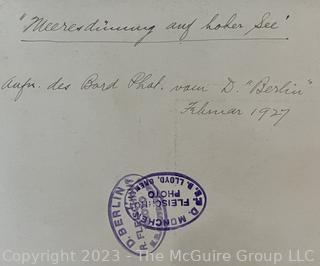 "Meeresdünung auf hoher See"
Aufn. des Bord Phot. vom D. "Berlin"
Februar 1927
D BERLIN
R. FLEISCHHU
D. MÜNCHEN
FLEISCHHU
PHOTO
LLOYD, BREM
Copyright 2023 - The McGuire Group LLC